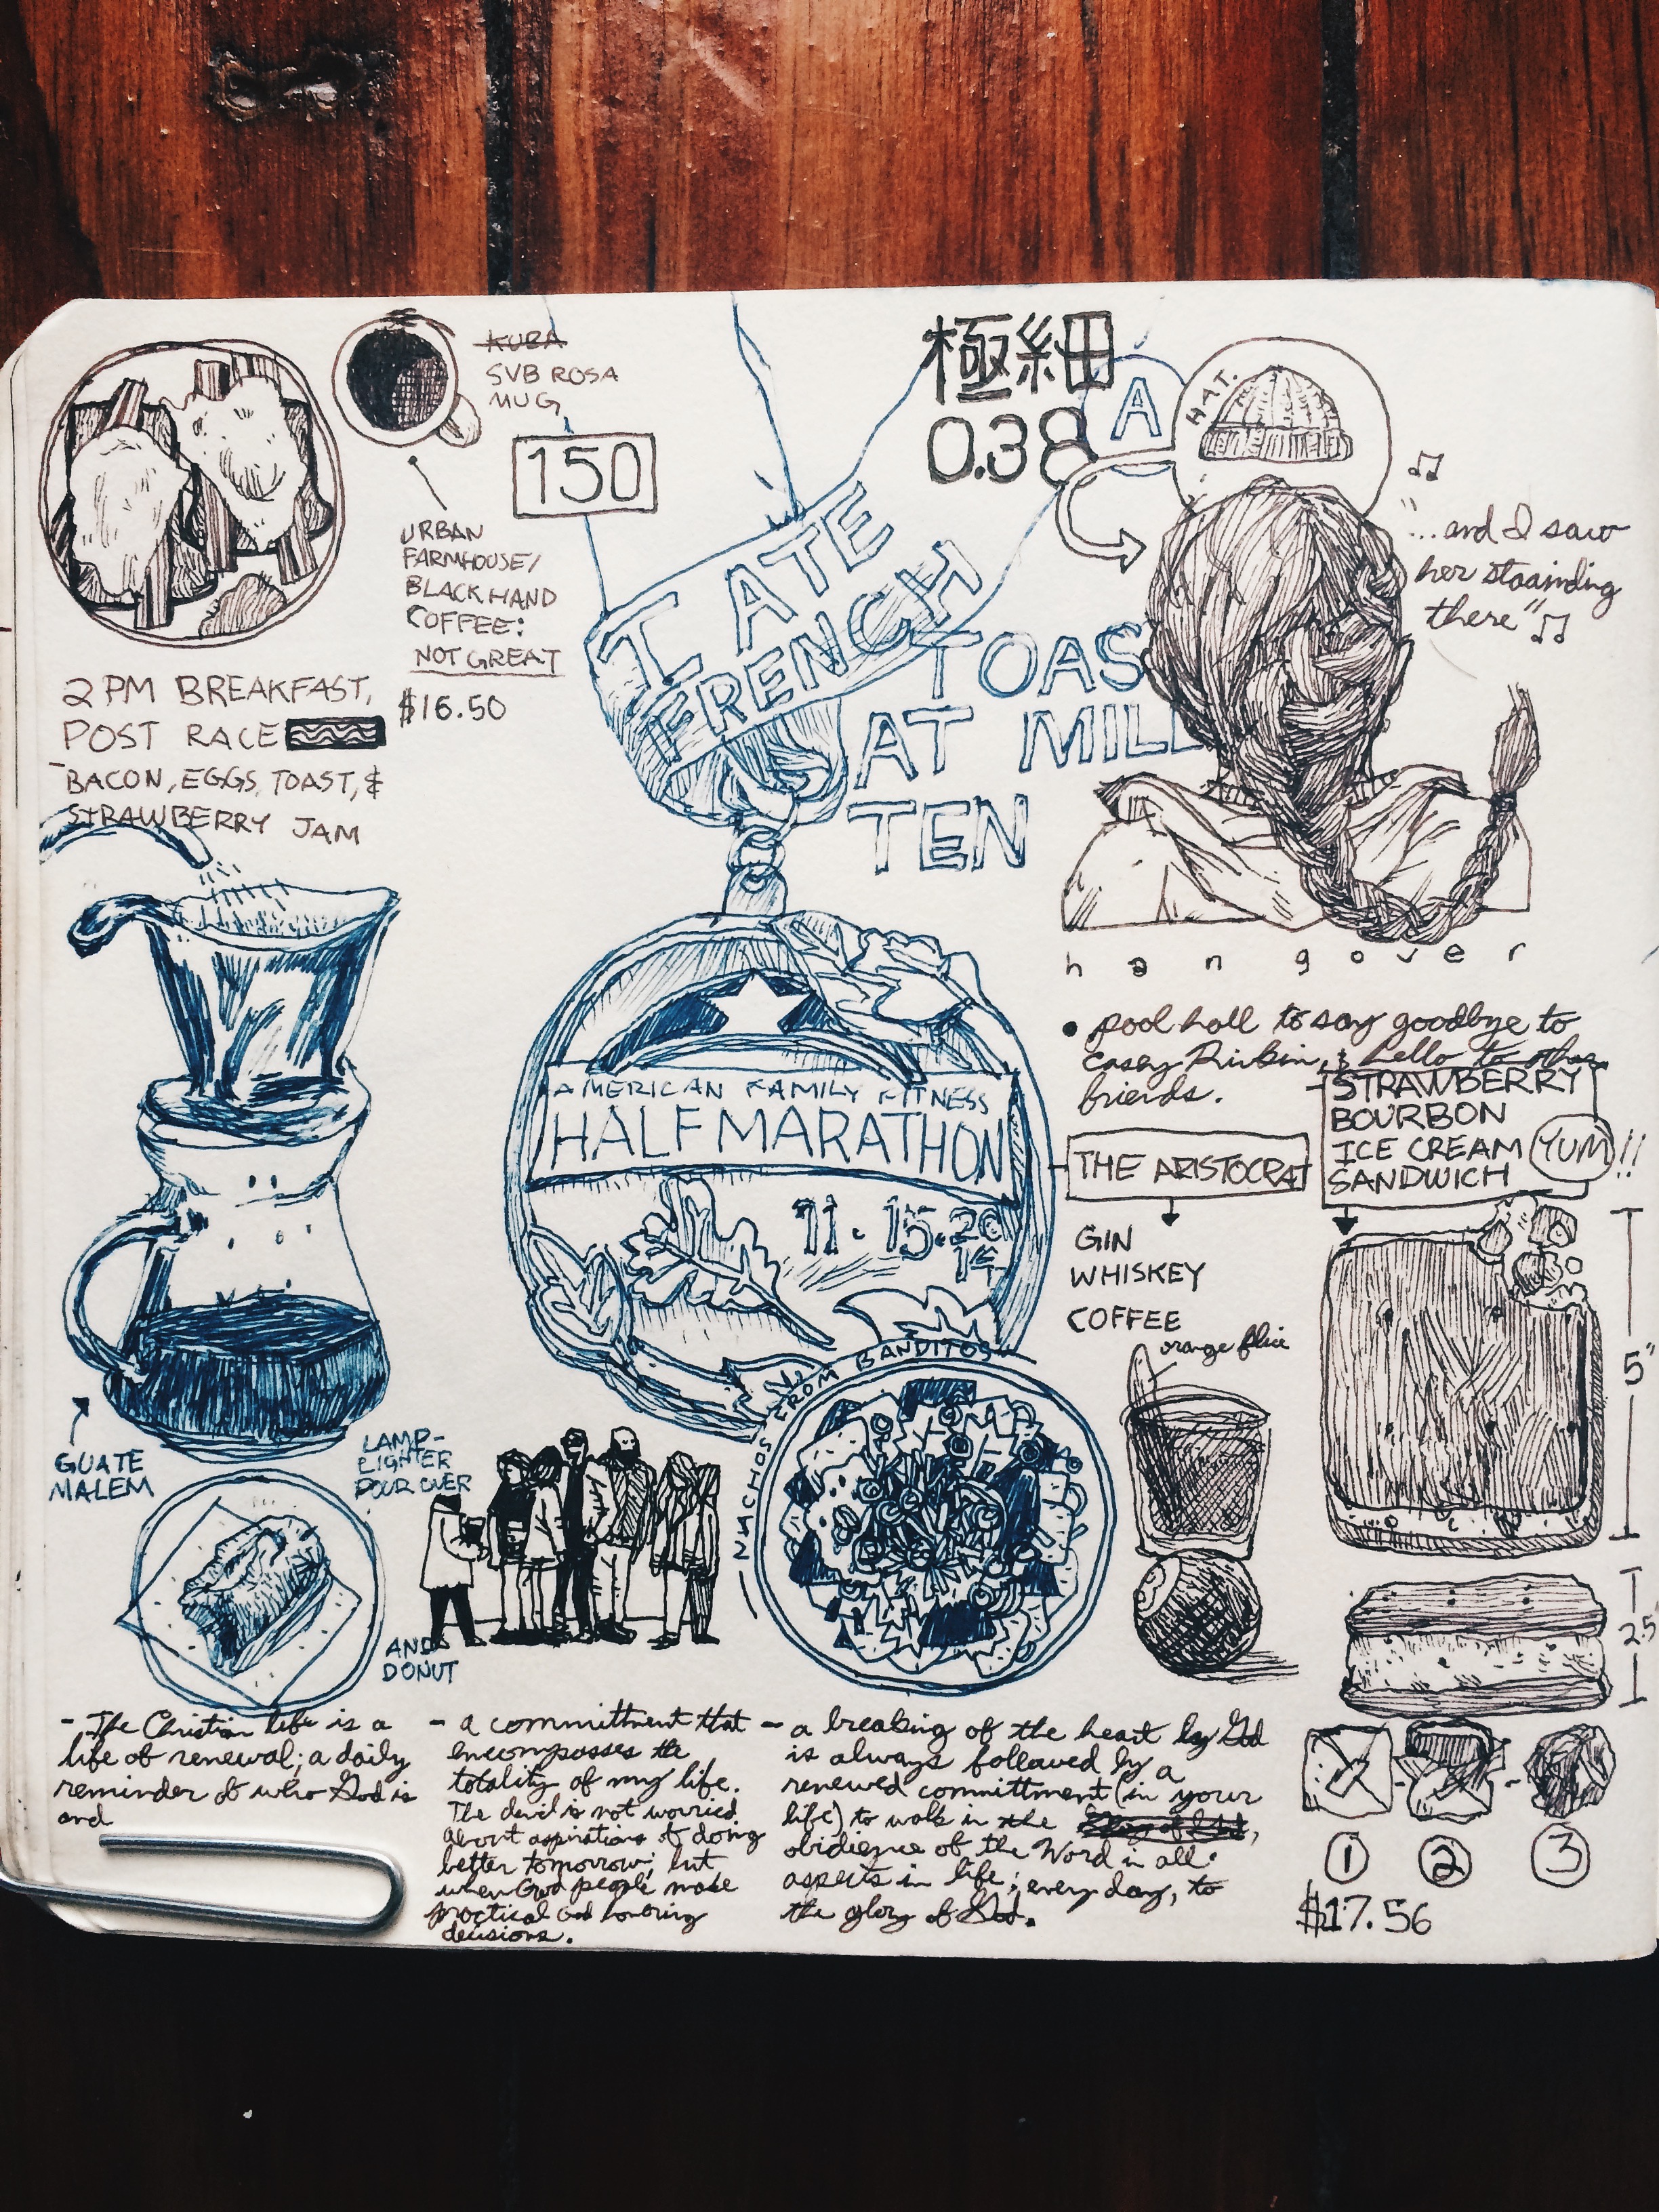 KUBA
SUB ROSA
MUG
150
URBAN
FARMHOUSE/
BLACK HAND
COFFEE:
NOT GREAT
$16.50
2 PM BREAKFAST,
POST RACE
BACON, EGGS, TOAST, &
STRAWBERRY JAM
I ATE
FRENCH
TOAS
AT MILL
TEN
極細
0.38
A
HAT.
"...and I saw
her staainding
there"
hangover
• pool hall to say goodbye to
Casey & hello to other
friends.
THE ARISTOCRAT
GIN
WHISKEY
COFFEE
orange slice
STRAWBERRY
BOURBON
ICE CREAM
SANDWICH
YUM!!
5"
2.5"
1
2
3
$17.56
AMERICAN FAMILY FITNESS
HALF MARATHON
11.15.20
14
NACHOS FROM BANDITOS
GUATE
MALEM
LAMP-
LIGHTER
POUR OVER
AND
DONUT
- The Christian life is a
life of renewal; a daily
reminder of who God is
and
- a committment that
encompasses the
totality of my life.
The devil is not worried
about aspirations of doing
better tomorrow; but
when God people make
practical God honoring
decisions.
- a breaking of the heart by God
is always followed by a
renewed committment (in your
life) to walk in the
obidience of the Word in all
aspects in life; every day, to
the glory of God.